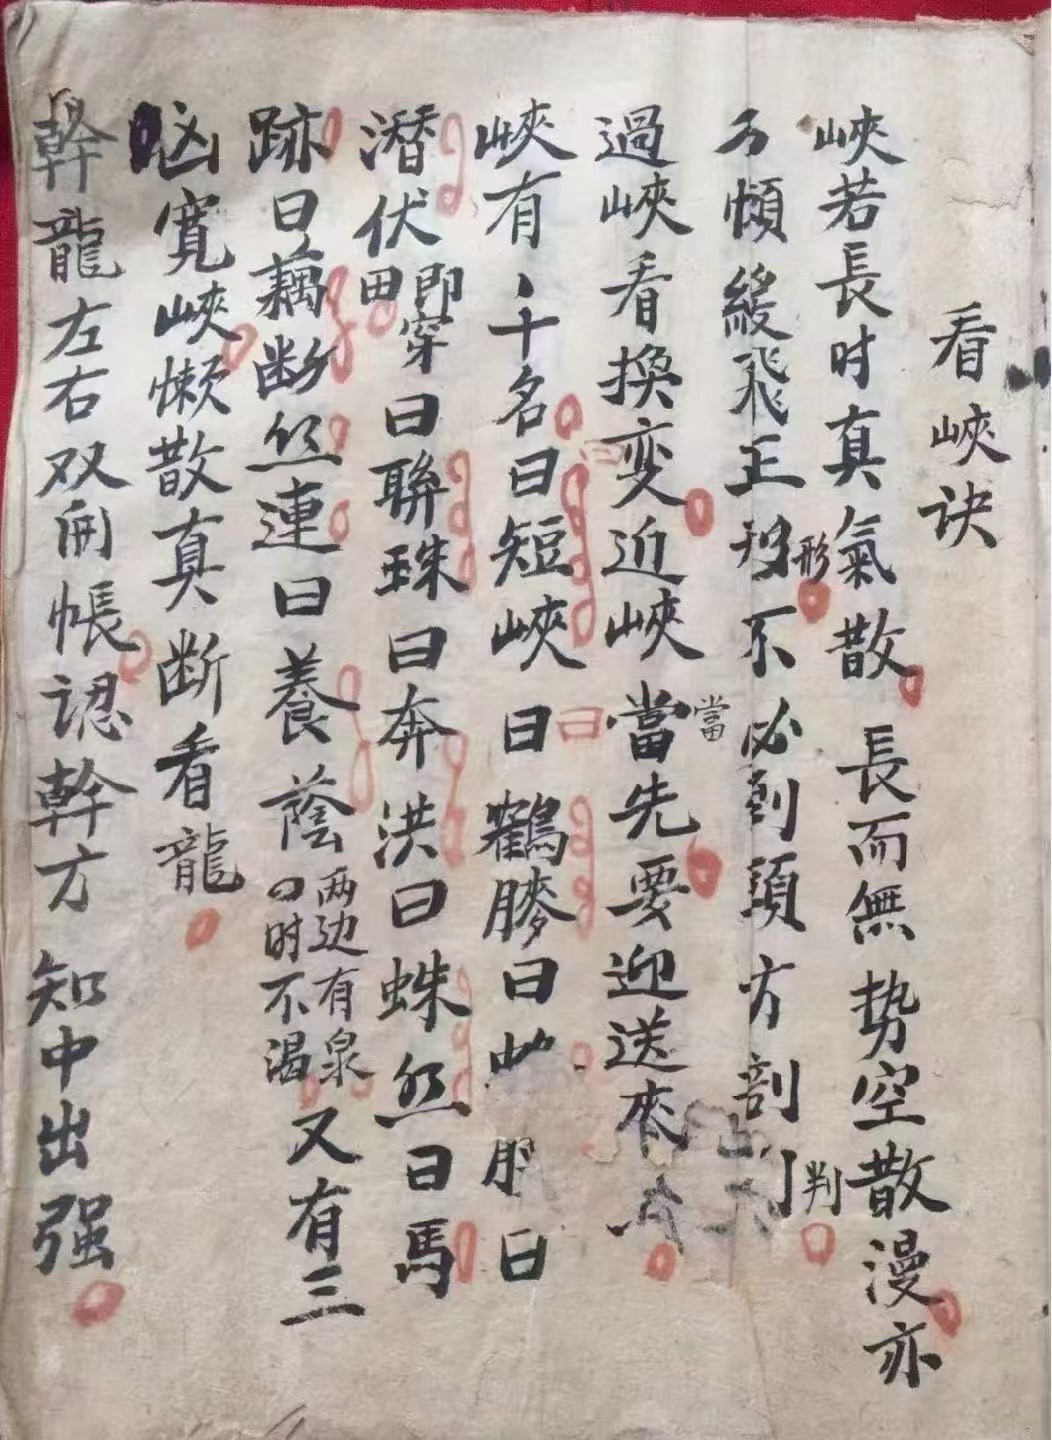 看峽诀
峽若長时真氣散 長而無势空散漫亦
不煩緩飛正形不必到頭方剖判
過峽看換变近峽當先要迎送來
峽有八十名曰短峽曰鶴膝曰 曰
潛伏即穿田曰聯珠曰奔洪曰蛛丝曰馬
跡曰藕断丝連曰養蔭两边有泉四时不渴又有三
凶寛峽懒散真断看龍
幹龍左右双開帳認幹方知中出强